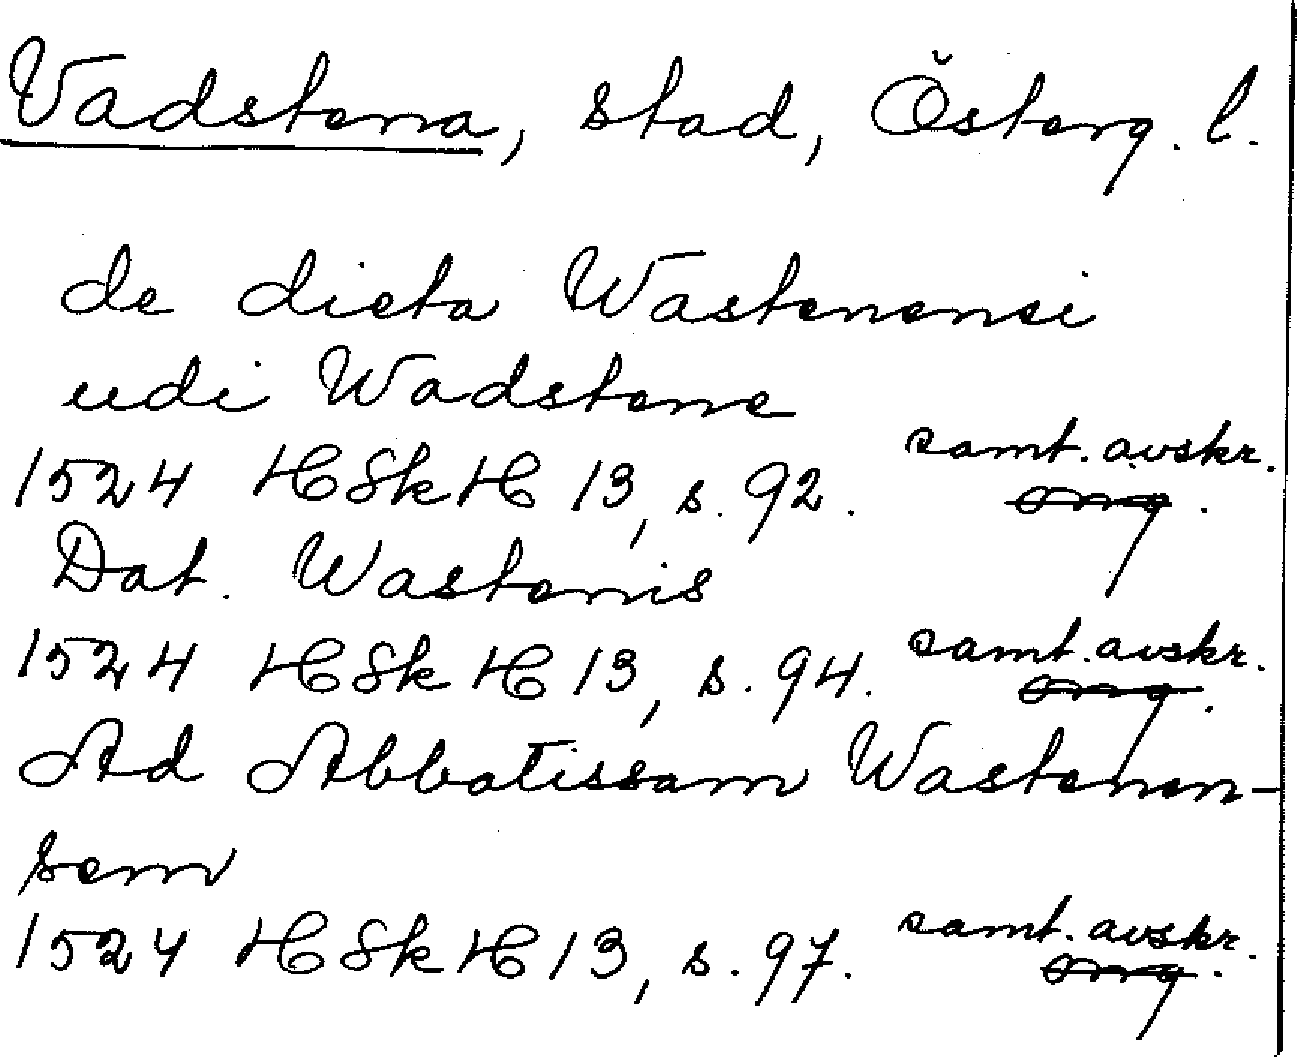 Vadstena, stad, Österg. l.
de dieta Wastenensi
udi Wadstene
samt. avskr.
1524 HSkH 13, s. 92. org.
Dat. Wastenis
samt. avskr.
1524 HSkH 13, s. 94. org.
Ad Abbatissam Wastenen-
sem
samt. avskr.
1524 HSkH 13, s. 97. org.